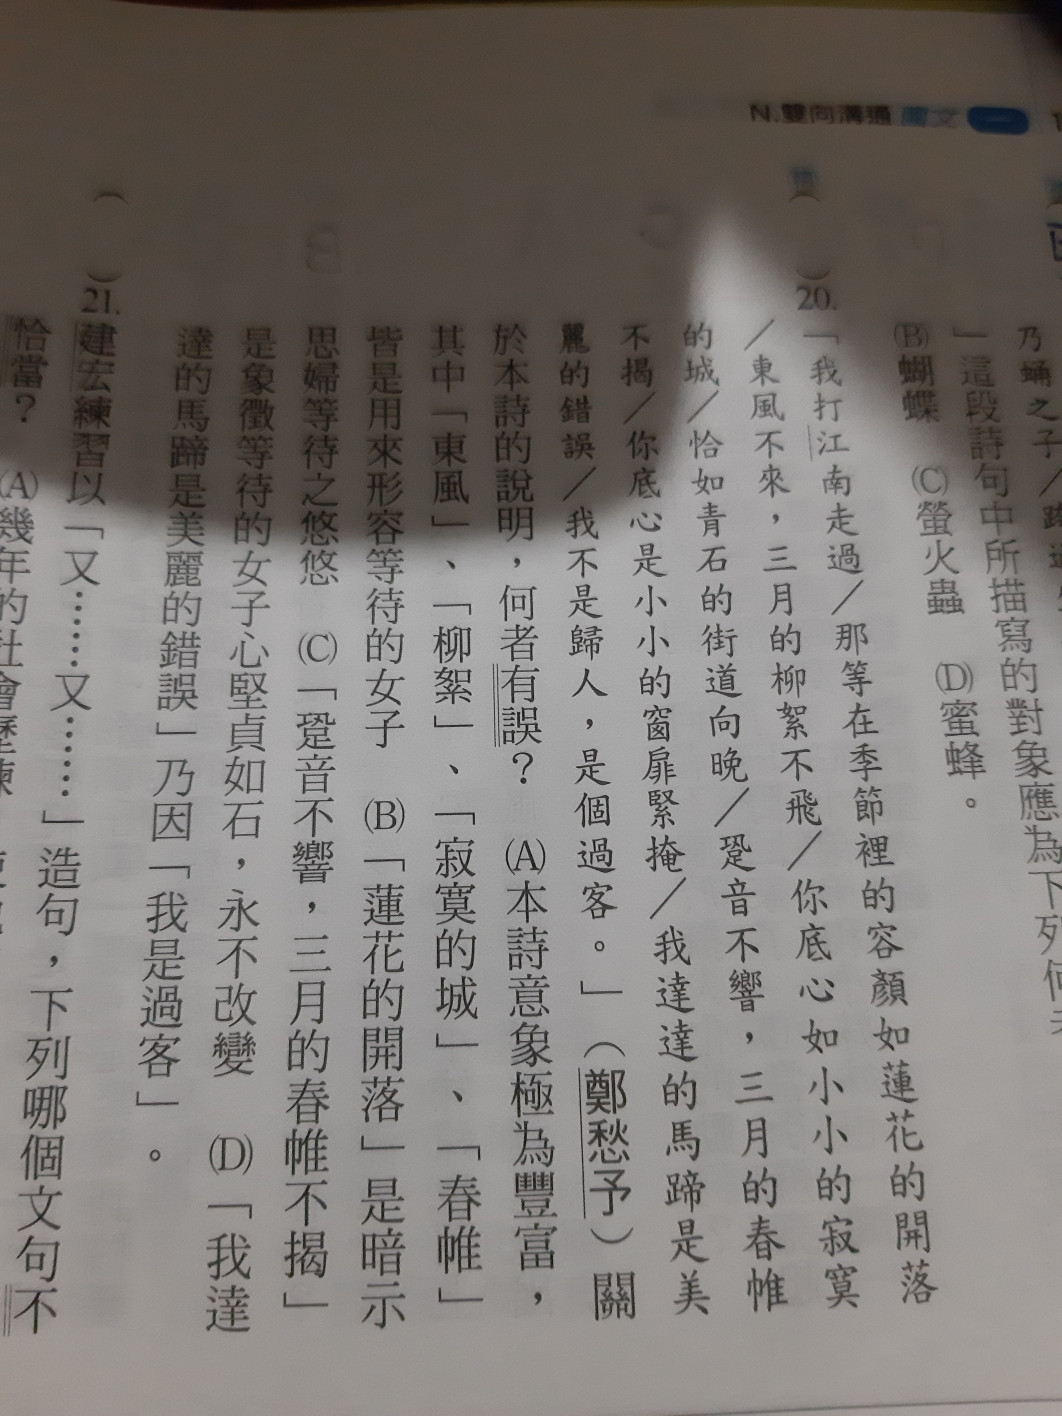 N.雙向溝通 國文 一
乃蛹之子／
」這段詩句中所描寫的對象應為下列何者
(B)蝴蝶　(C)螢火蟲　(D)蜜蜂。
(　)20.「我打江南走過／那等在季節裡的容顏如蓮花的開落
／東風不來，三月的柳絮不飛／你底心如小小的寂寞
的城／恰如青石的街道向晚／跫音不響，三月的春帷
不揭／你底心是小小的窗扉緊掩／我達達的馬蹄是美
麗的錯誤／我不是歸人，是個過客。」（鄭愁予）關
於本詩的說明，何者有誤？　(A)本詩意象極為豐富，
其中「東風」、「柳絮」、「寂寞的城」、「春帷」
皆是用來形容等待的女子　(B)「蓮花的開落」是暗示
思婦等待之悠悠　(C)「跫音不響，三月的春帷不揭」
是象徵等待的女子心堅貞如石，永不改變　(D)「我達
達的馬蹄是美麗的錯誤」乃因「我是過客」。
(　)21.建宏練習以「又……又……」造句，下列哪個文句不
恰當？　(A)幾年的社會歷練